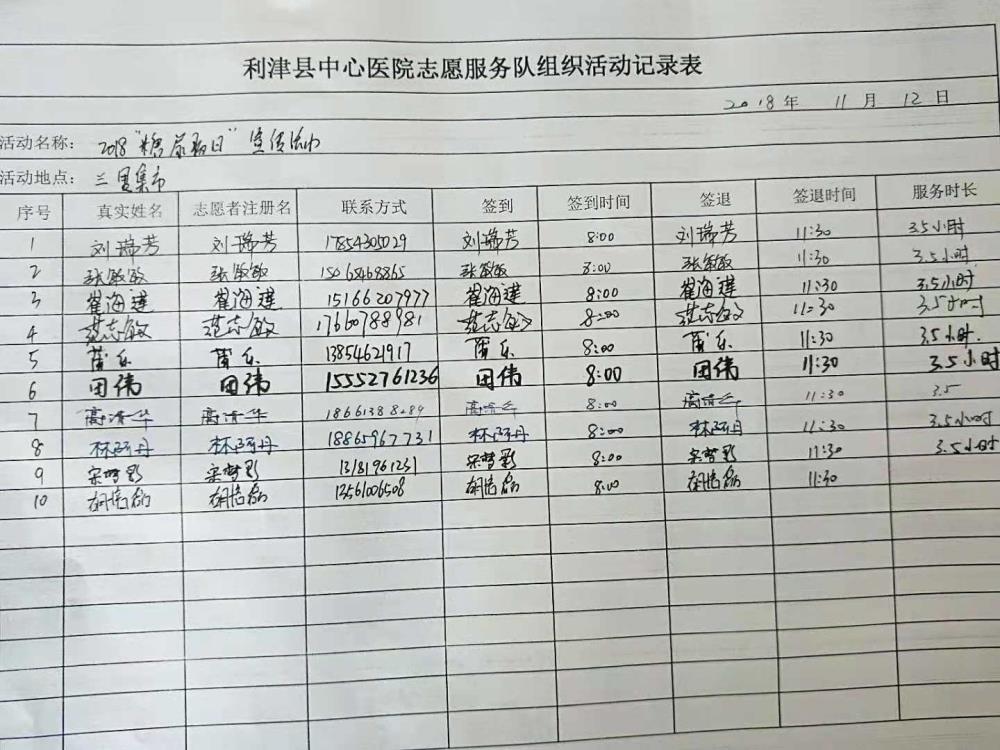 利津县中心医院志愿服务队组织活动记录表
2018年 11月 12日
活动名称： 2018"糖尿病日"宣传活动
活动地点： 三里集市
序号 真实姓名 志愿者注册名 联系方式 签到 签到时间 签退 签退时间 服务时长
1 刘瑞芳 刘瑞芳 17854305029 刘瑞芳 8:00 刘瑞芳 11:30 3.5小时
2 张敏敏 张敏敏 15065468865 张敏敏 8:00 张敏敏 11:30 3.5小时
3 崔海莲 崔海莲 15166207977 崔海莲 8:00 崔海莲 11:30 3.5小时
4 范志敏 范志敏 17660788981 范志敏 8:00 范志敏 11:30 3.5小时
5 乐 乐 13854621917 乐 8:00 乐 11:30 3.5小时.
6 田伟 田伟 15552761236 田伟 8:00 田伟 11:30 3.5小时
7 高清华 高清华 高清华 8:00 高清华 11:30 3.5
8 林阿丹 林阿丹 18865967731 林阿丹 8:00 林阿丹 11:30 3.5小时
9 宋梦影 宋梦影 宋梦影 8:00 宋梦影 11:30 3.5小时
10 胡培磊 胡培磊 13561006508 胡培磊 8:00 胡培磊 11:30